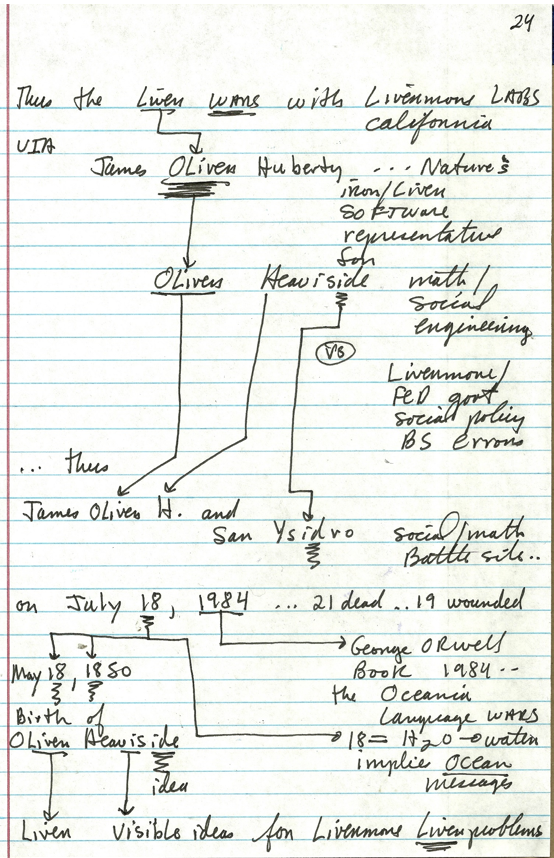 24
Thus the Liver WARS with Livermore LABS
California
VIA
James OLiver Huberty ... Nature's
iron/Liver
SOFTware
representative
for
OLiver Heaviside math/
social
engineering
VS
Livermore/
FED govt
social policy
BS errors
... thus
James OLiver H. and
San Ysidro social/math
Battle site..
on July 18, 1984 ... 21 dead .. 19 wounded
George ORwell
Book 1984 ..
the Oceania
Language WARS
May 18, 1850
Birth of
OLiver Heaviside
18 = H2O → water
implies OCEAN
messages
idea
Liver Visible ideas for Livermore Liver problems